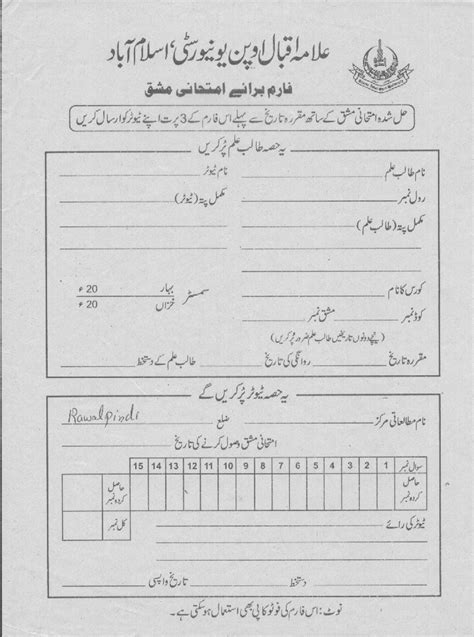 علامہ اقبال اوپن یونیورسٹی، اسلام آباد
فارم برائے امتحانی مشق
حل شدہ امتحانی مشق کے ساتھ مقررہ تاریخ سے پہلے اس فارم کے 3 پرت اپنے ٹیوٹر کو ارسال کریں
یہ حصہ طالب علم پُر کریں
نام طالب علم نام ٹیوٹر
رول نمبر مکمل پتہ (ٹیوٹر)
مکمل پتہ (طالب علم)
کورس کا نام سمسٹر بہار 20ء
کوڈ نمبر مشق نمبر خزاں 20ء
(نیچے دونوں تاریخیں طالب علم ضرور پُر کریں)
مقررہ تاریخ روانگی کی تاریخ طالب علم کے دستخط
یہ حصہ ٹیوٹر پُر کریں گے
نام مطالعاتی مرکز ضلع Rawalpindi
امتحانی مشق وصول کرنے کی تاریخ
سوال نمبر 1 2 3 4 5 6 7 8 9 10 11 12 13 14 15
حاصل کردہ نمبر حاصل کردہ نمبر
کل نمبر
ٹیوٹر کی رائے
دستخط تاریخ واپسی
نوٹ: اس فارم کی فوٹو کاپی بھی استعمال ہو سکتی ہے۔